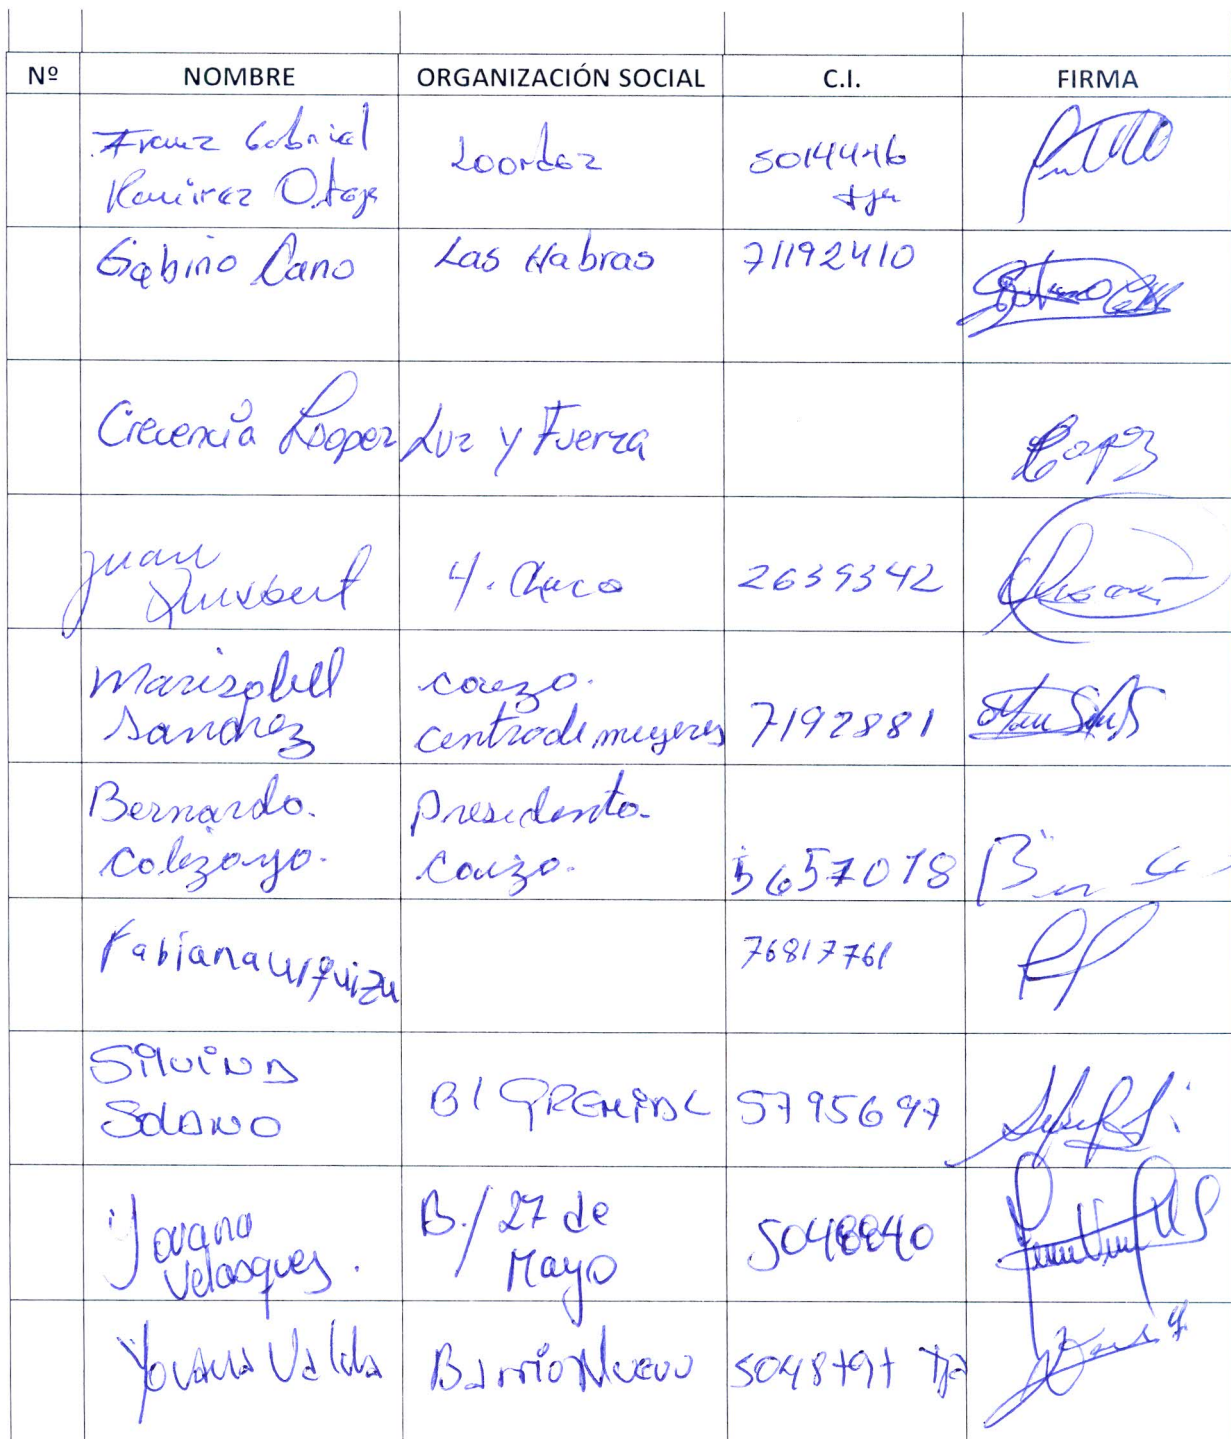 Nº NOMBRE ORGANIZACIÓN SOCIAL C.I. FIRMA
Franz Gabriel
Ramirez
Loordez
Gabino Cano Las Habras 71192410
Crecencia Loopez Luz y Fuerza
Lopez
Juan
2639342
Marisabell
Sanchez
caizo.
centro de mugeres 7192881
Bernardo.
Colezayo.
Presidento.
Caizo.
5657018
Fabiana Urquizu 76817761
Silvina
Solano
B/ GREMIAL 5795697
Yovana
Velasquez.
B./27 de
Mayo
5048840
Yovana Valda Barrio Nuevo Tja